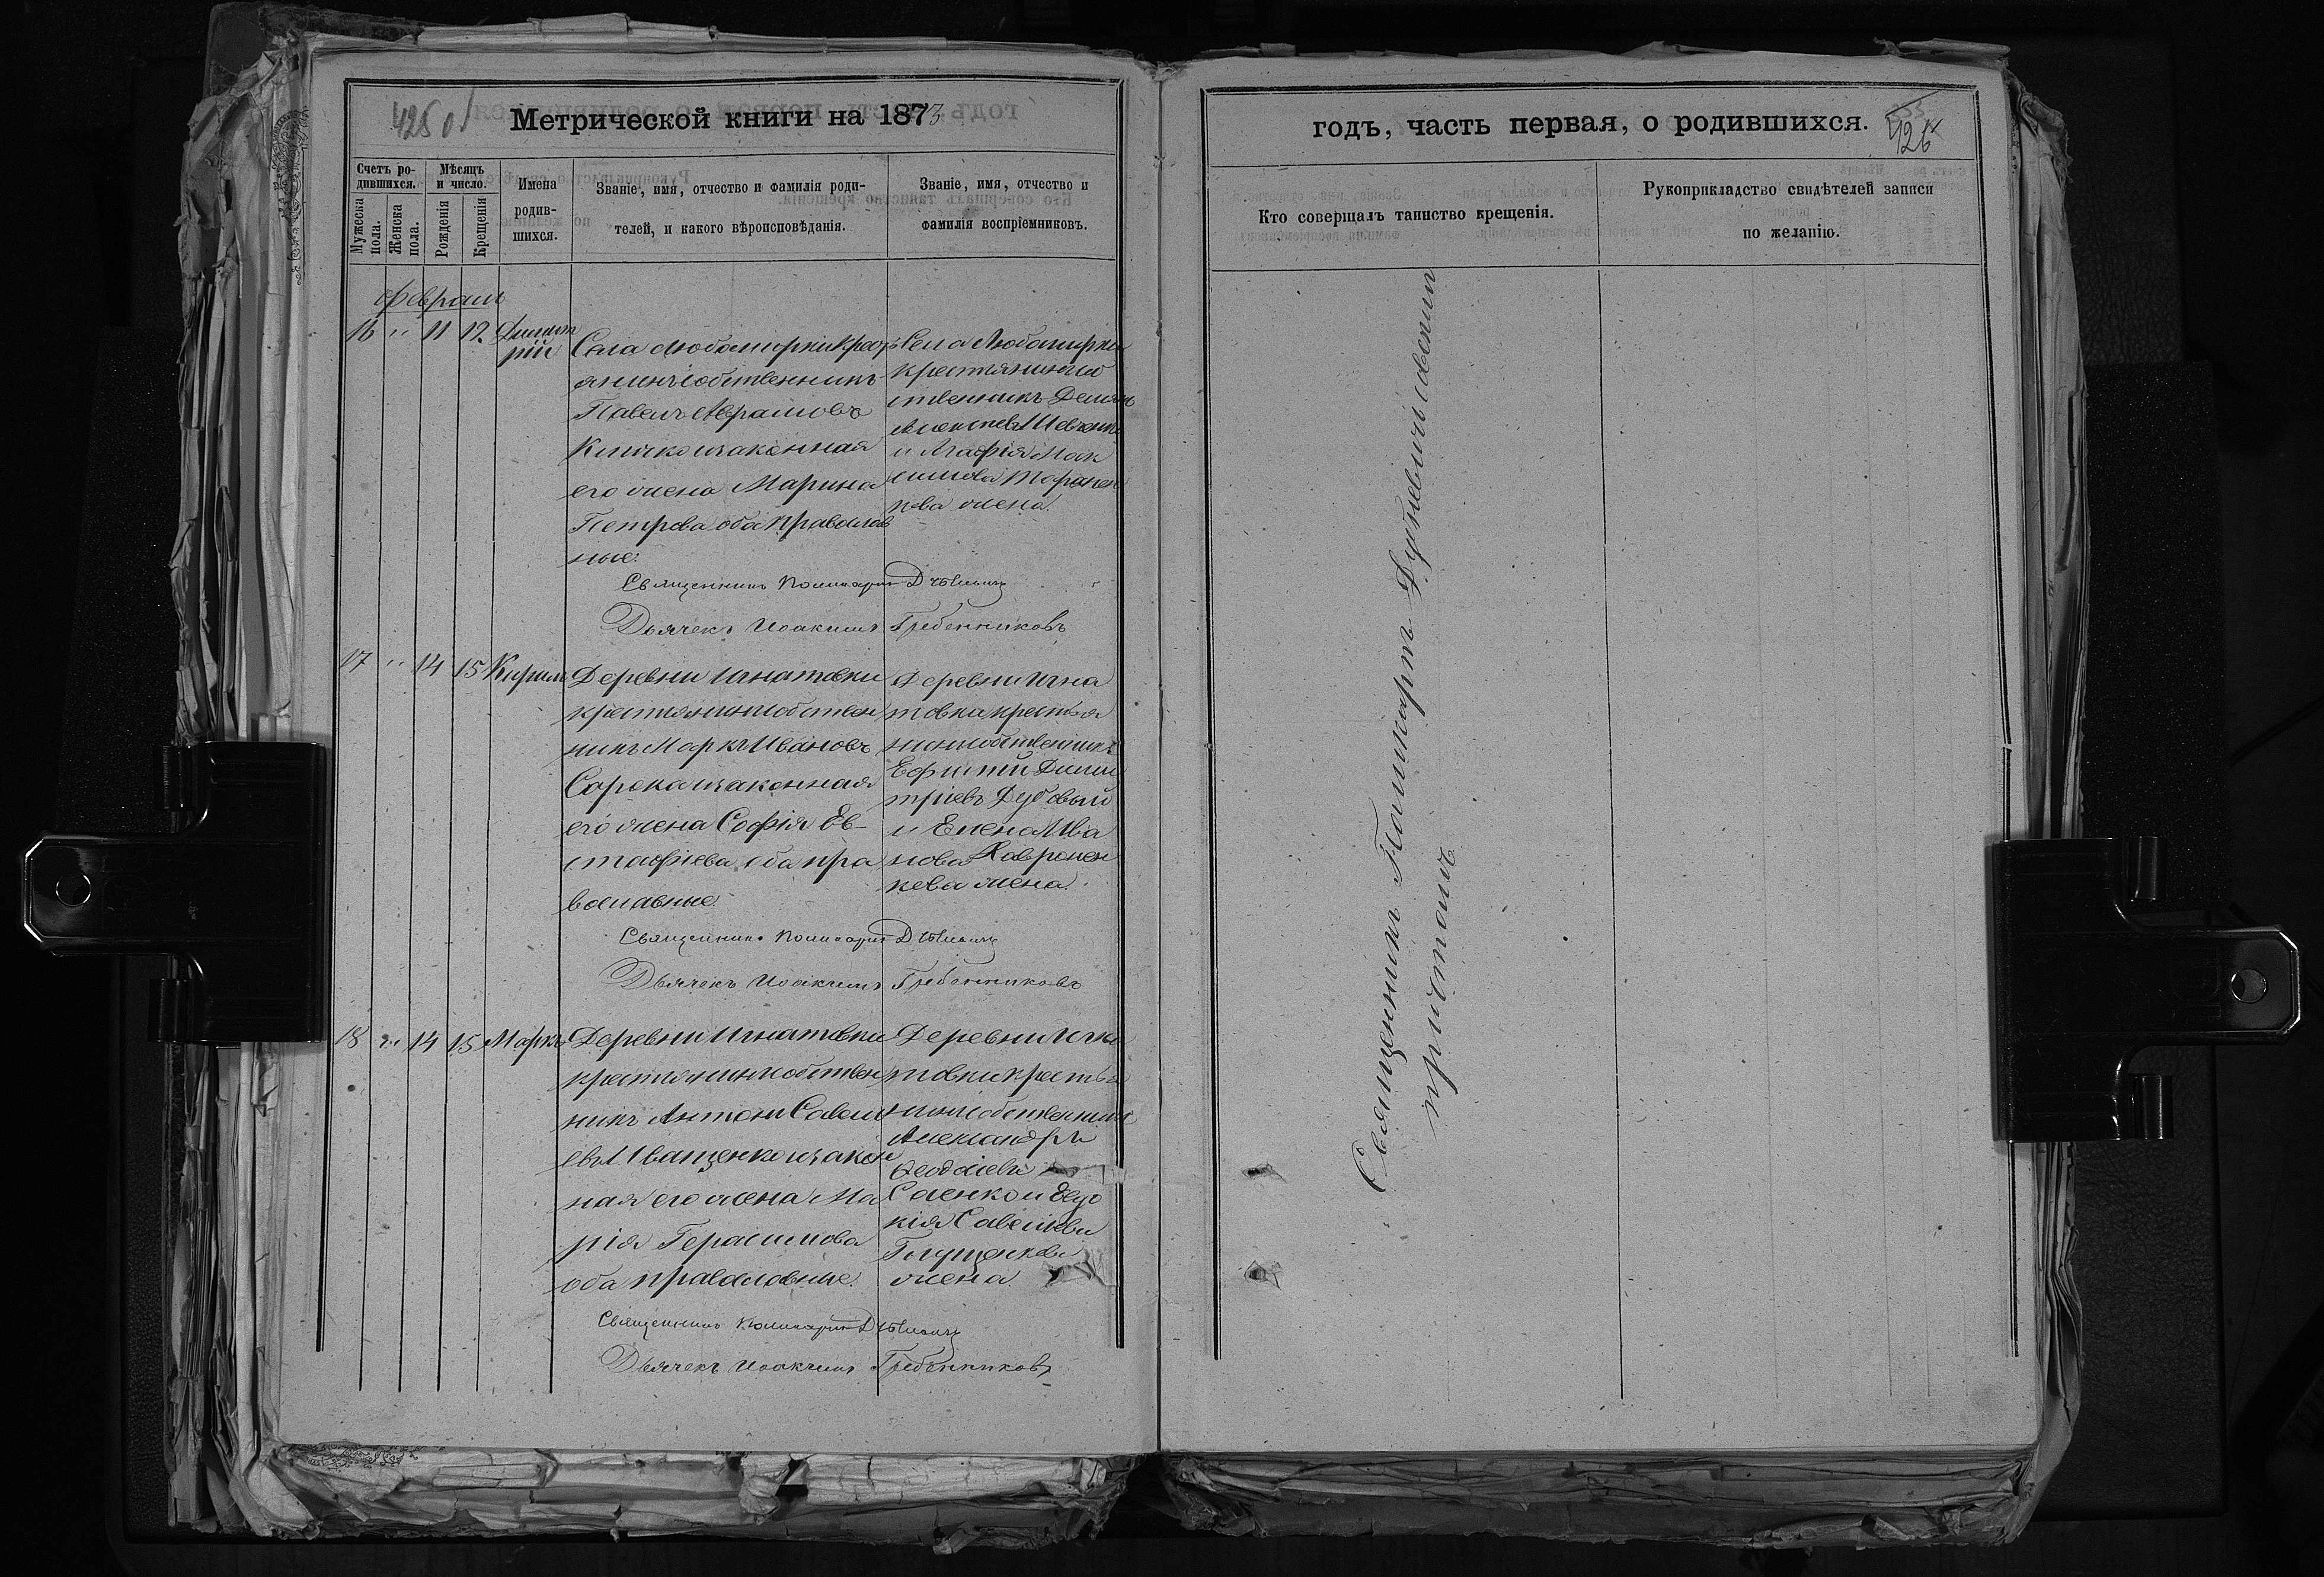 Метрической книги на 1873
Счетъ родившихся.
Мужеска пола.
Женска пола.
Мѣсяцъ и число.
Рожденія
Крещенія
Имена родившихся.
Званіе, имя, отчество и фамилія родителей, и какого вѣроисповѣданія.
Званіе, имя, отчество и фамилія воспріемниковъ.
февраль
16 " 11 12 Димит
рій
Села Любомирки Крест
янинъ собственникъ
Павелъ Аврамовъ
и законная
его жена Марина
Петрова оба православ
ные.
Села Любомирки
крестьянинъ соб
ственникъ Демьянъ
и Агафія Мак
симова
жена.
Священникъ Поликарпъ
Дьячекъ Иоакимъ Гребенниковъ
17 " 14 15 Кирилъ
Деревни Игнатовки
крестьянинъ собствен
никъ Маркъ Ивановъ
Сорока и законная
его жена Софія Ев
стафиева оба пра
вославные.
Деревни Игна
товки крестья
нинъ собственникъ
Ефимій Дими
тріевъ Дубовый
и Елена Ива
нова Хавронен
кова жена.
Священникъ Поликарпъ
Дьячекъ Иоакимъ Гребенниковъ
18 " 14 15 Маркъ
Деревни Игнатовки
крестьянинъ собствен
никъ Антонъ Савель
евъ Иващенко и закон
ная его жена Ма
рія Герасимова
оба православные.
Деревни Игна
товки крестья
нинъ собственникъ
Александръ
Саенко и Евдо
кія Савельева
жена.
Священникъ Поликарпъ
Дьячекъ Иоакимъ Гребенниковъ
годъ, часть первая, о родившихся.
426
Кто совершалъ таинство крещенія.
Рукоприкладство свидѣтелей записи по желанію.
Священникъ Поликарпъ